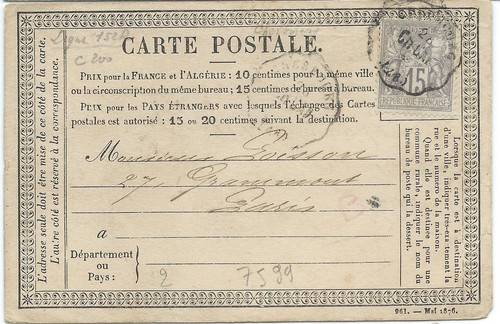 Ligne 152
C 200
CARTE POSTALE.
PRIX pour la FRANCE et l'ALGÉRIE : 10 centimes pour la même ville
ou la circonscription du même bureau; 15 centimes de bureau à bureau.
PRIX pour les PAYS ÉTRANGERS avec lesquels l'échange des Cartes
postales est autorisé : 15 ou 20 centimes suivant la destination.
15
RÉPUBLIQUE FRANÇAISE
L'adresse seule doit être mise de ce côté de la carte.
L'autre côté est réservé à la correspondance.
Monsieur Poisson
27 Grammont
Paris
à
Département
ou
Pays :
2
7599
Lorsque la carte est à destination
d'une ville, indiquer très-exactement
la rue et le numéro de la maison.
Quand elle est destinée pour une
commune rurale, indiquer le nom du
bureau de poste qui la dessert.
961. — Mai 1876.